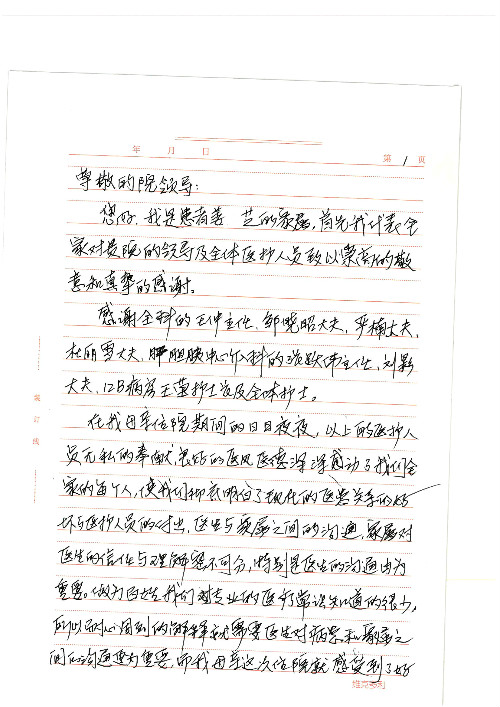 年 月 日
第 1 页
尊敬的院领导：
您好，我是患者姜 芝的家属，首先我代表全
家对贵院的领导及全体医护人员致以崇高的敬
意和真挚的感谢。
感谢全科的王仲主任、邹晓昭大夫、平楠大夫、
杜丽雪大夫、肝胆胰中心介入科的 主任、刘影
大夫、12B病房王莹护士长及全体护士。
在我母亲住院期间的日日夜夜，以上的医护人
员无私的奉献 的医风医德深深感动了我们全
家的每个人，使我们彻底明白了现代的医患关系的好
坏与医护人员的付出，医生与家属之间的沟通，家属对
医生的信任与理解密不可分，特别是医生的沟通尤为
重要。做为 我们对专业的医疗常识知道的很少，
所以耐心周到的解释就需要医生对病患和家属之
间的沟通更为重要，而我母亲这次住院就感受到了好
装订线